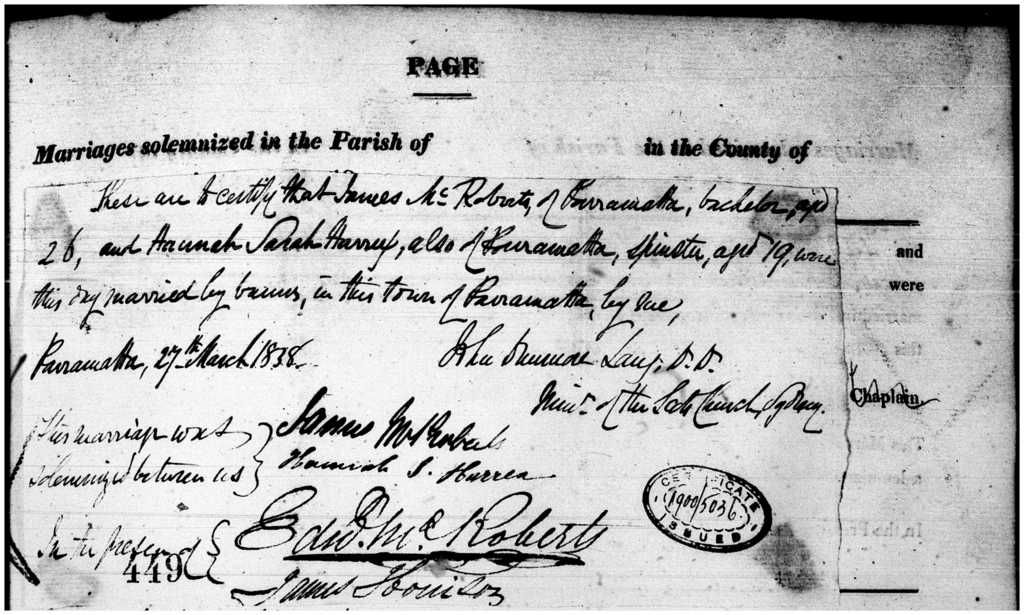 PAGE
Marriages solemnized in the Parish of in the County of
These are to certify that James Mc Roberts, of Parramatta, bachelor, aged
26, and Hannah Sarah, also of Parramatta, spinster, aged 19, were
this day married by banns, in this town of Parramatta, by me,
and
were
Parramatta, 27th March 1838. John Dunmore Lang, D.D.
Minr. of the Scots Church, Sydney.
Chaplain
This marriage was
solemnized between us
James McRoberts
Hannah S.
In the presence of
Edwd. Mc Roberts
James
449
CERTIFICATE
1900/5036
ISSUED